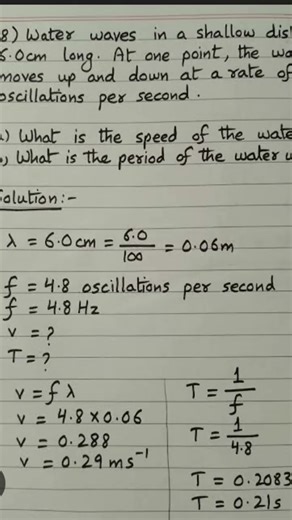 8) Water waves in a shallow dis
6.0cm long. At one point, the wa
moves up and down at a rate of
oscillations per second.
a) What is the speed of the wate
b) What is the period of the water w
Solution:-
λ = 6.0cm = 6.0/100 = 0.06m
f = 4.8 oscillations per second
f = 4.8 Hz
v = ?
T = ?
v = f λ
v = 4.8 x 0.06
v = 0.288
v = 0.29 ms⁻¹
T = 1/f
T = 1/4.8
T = 0.2083
T = 0.21s